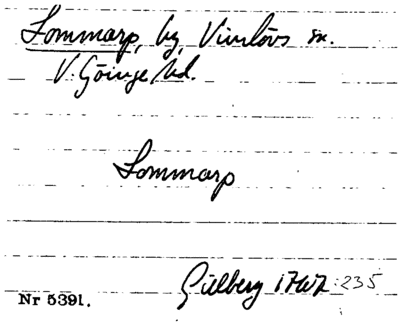 Sommarp, by, Vinslövs sn.
V. Göinge hd.
Sommarp
Gillberg 1767:235
Nr 5391.